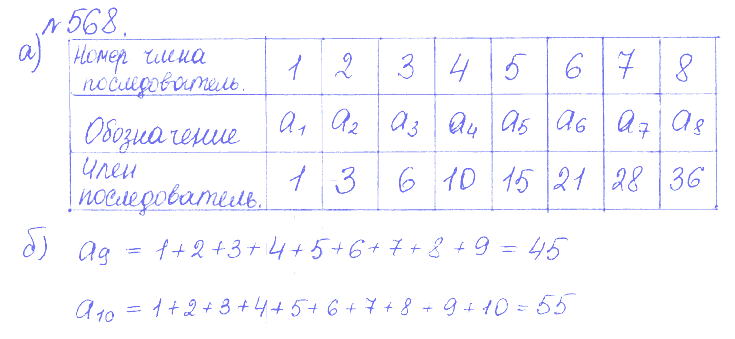 № 568.
а)
Номер члена последователь. 1 2 3 4 5 6 7 8
Обозначение a₁ a₂ a₃ a₄ a₅ a₆ a₇ a₈
Член последователь. 1 3 6 10 15 21 28 36
б) a₉ = 1+2+3+4+5+6+7+8+9 = 45
a₁₀ = 1+2+3+4+5+6+7+8+9+10=55